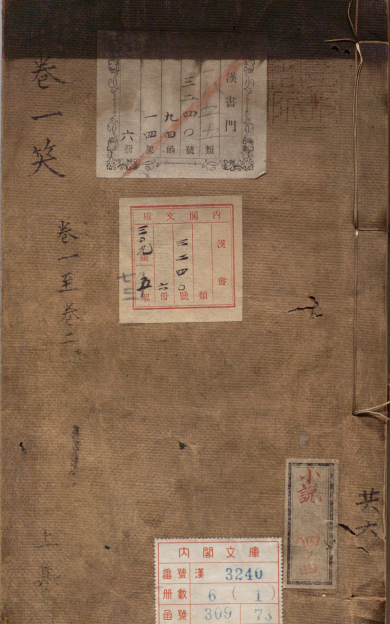 卷一笑
卷一至卷二
上集
漢書門
類
三二四〇號
九四函
一四架
六冊
內閣文庫
漢書
類
三二四〇號
六冊
三〇九函
五架
七三
小說
共六
內閣文庫
番號 漢 3240
冊數 6 (1)
函號 309 73